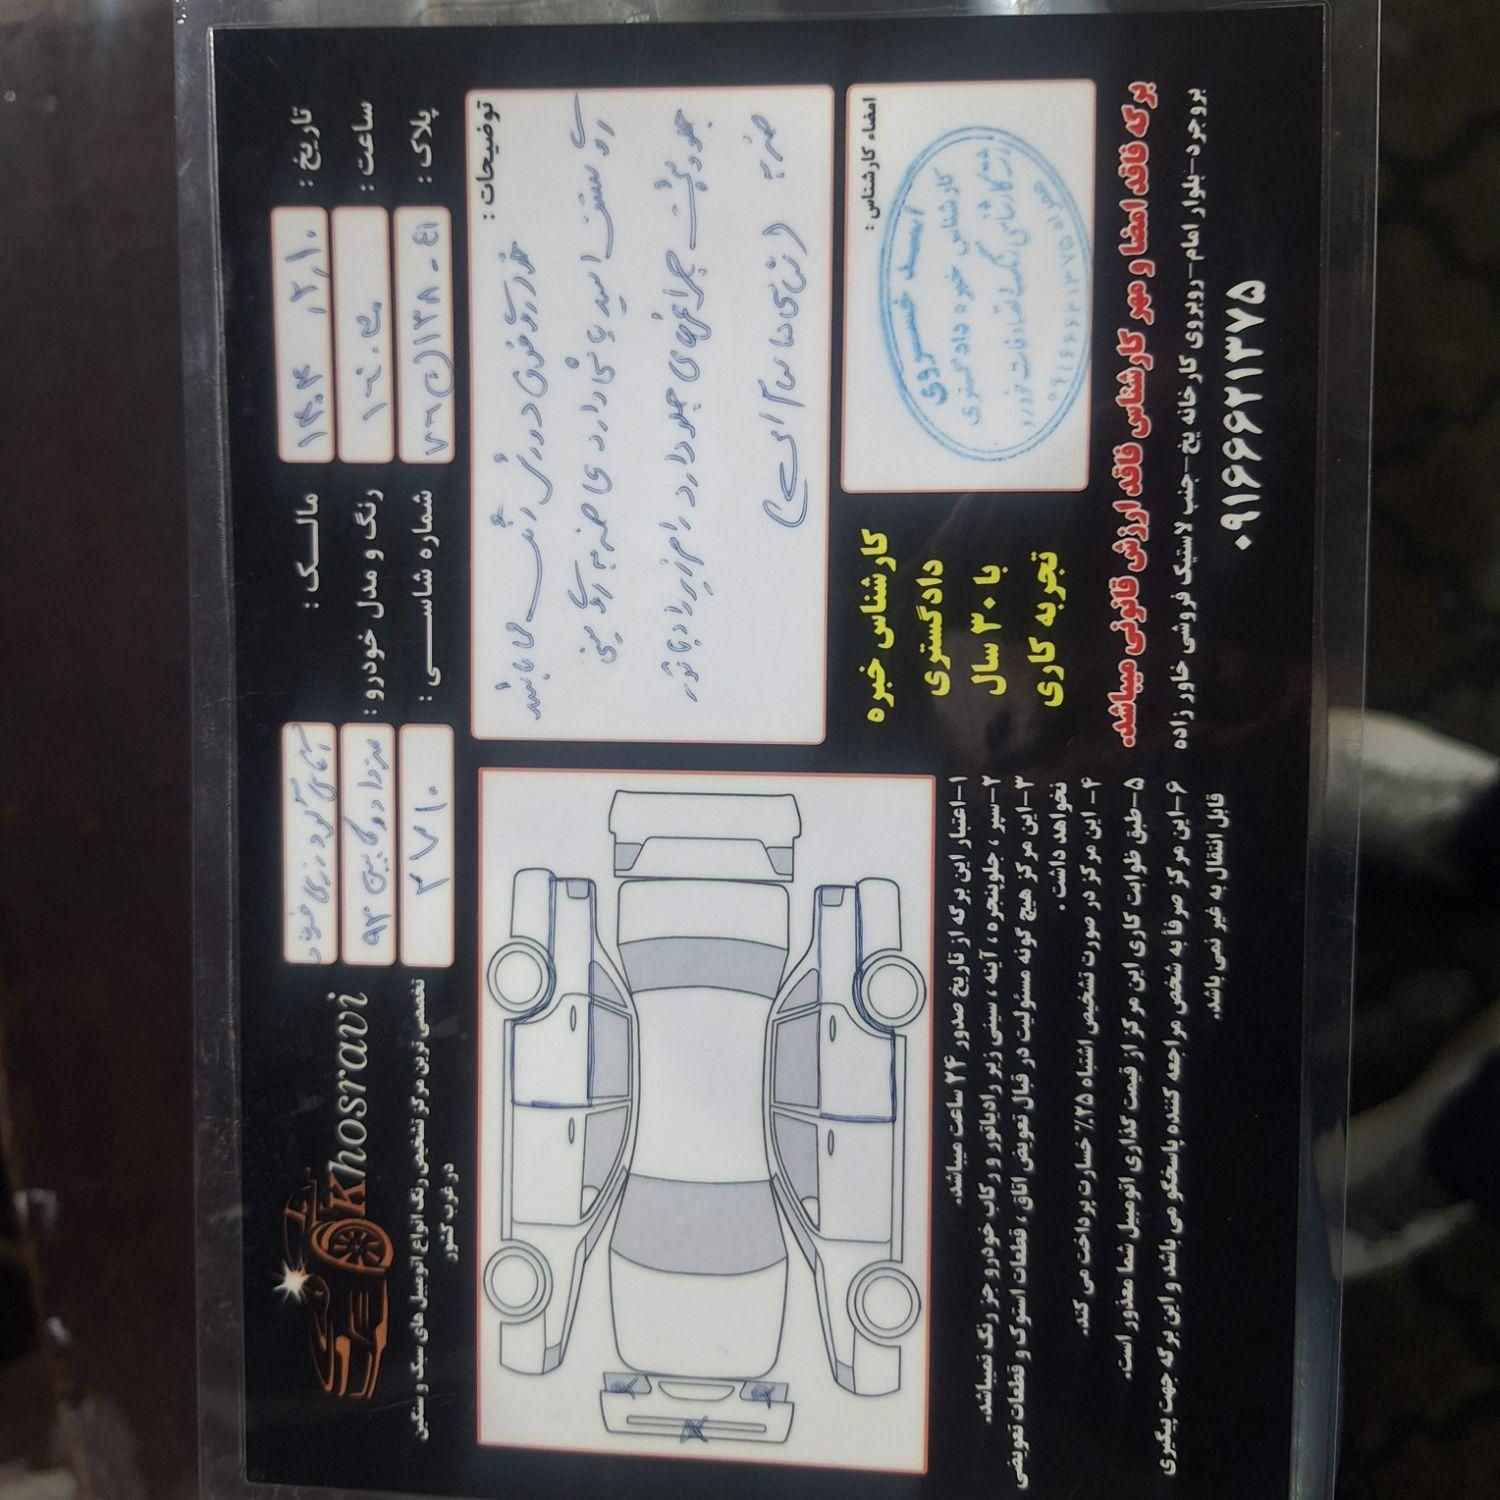 Khosravi
تخصصی ترین مرکز تشخیص رنگ انواع اتومبیل های سبک و سنگین
در غرب کشور
تاریخ :
ساعت :
پلاک :
۴۱ - ۱۳۸
مالک :
رنگ و مدل خودرو :
۹۳
شماره شاسی :
۲۷۱۰
توضیحات :
خودرو فوق دور رنگ می باشد
رو سقف اسید پاشی دارد
جلو پشت چراغهای جلو دارد رام زیر رادیاتور
ضربه
امضاء کارشناس :
خسروی
کارشناس خبره دادگستری
۰۹۱۶۶۶۲۱۳۷۵
کارشناس خبره
دادگستری
با ۳۰ سال
تجربه کاری
۱-اعتبار این برگه از تاریخ صدور ۲۴ ساعت میباشد.
۲-سپر ، جلوپنجره ، آینه ، سینی زیر رادیاتور و رکاب خودرو جز رنگ نمیباشد.
۳-این مرکز هیچ گونه مسئولیت در قبال تعویض اتاق ، قطعات استوک و قطعات تعویضی
نخواهد داشت .
۴- این مرکز در صورت تشخیص اشتباه ۲۵٪ خسارت پرداخت می کند.
۵-طبق ظوابت کاری این مرکز از قیمت گذاری اتومبیل شما معذور است.
۶-این مرکز صرفاً به شخص مراجعه کننده پاسخگو می باشد و این برگه جهت پیگیری
قابل انتقال به غیر نمی باشد.
برگه فاقد امضا و مهر کارشناس فاقد ارزش قانونی میباشد.
بروجرد-بلوار امام-روبروی کارخانه یخ-جنب لاستیک فروشی خاور زاده
۰۹۱۶۶۶۲۱۳۷۵